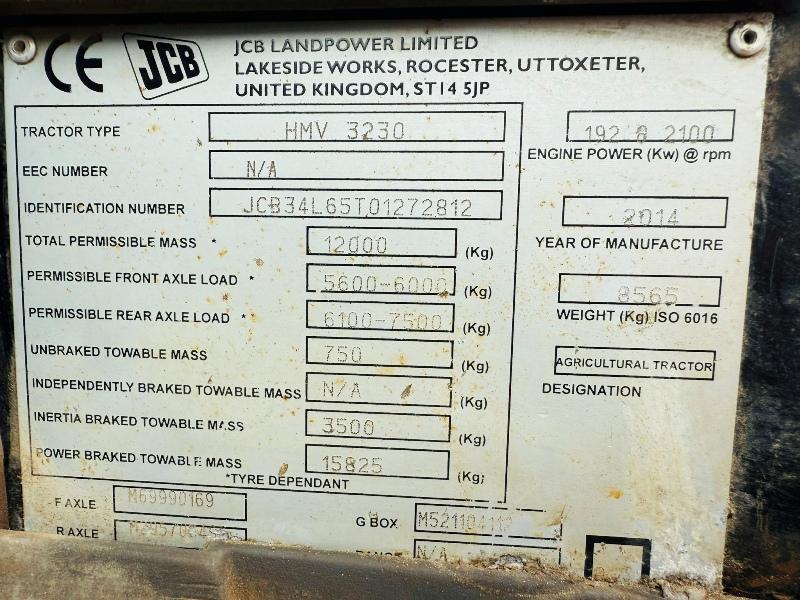 CE JCB JCB LANDPOWER LIMITED
LAKESIDE WORKS, ROCESTER, UTTOXETER,
UNITED KINGDOM, ST14 5JP
TRACTOR TYPE HMV 3230
EEC NUMBER N/A
IDENTIFICATION NUMBER JCB34L65T01272812
TOTAL PERMISSIBLE MASS * 12000 (Kg)
PERMISSIBLE FRONT AXLE LOAD * 5600-6000 (Kg)
PERMISSIBLE REAR AXLE LOAD * 6100-7500 (Kg)
UNBRAKED TOWABLE MASS 750 (Kg)
INDEPENDENTLY BRAKED TOWABLE MASS N/A (Kg)
INERTIA BRAKED TOWABLE MASS 3500 (Kg)
POWER BRAKED TOWABLE MASS 15825 (Kg)
*TYRE DEPENDANT
192 @ 2100
ENGINE POWER (Kw) @ rpm
2014
YEAR OF MANUFACTURE
8565
WEIGHT (Kg) ISO 6016
AGRICULTURAL TRACTOR
DESIGNATION
F AXLE M69990169
R AXLE
G BOX
N/A